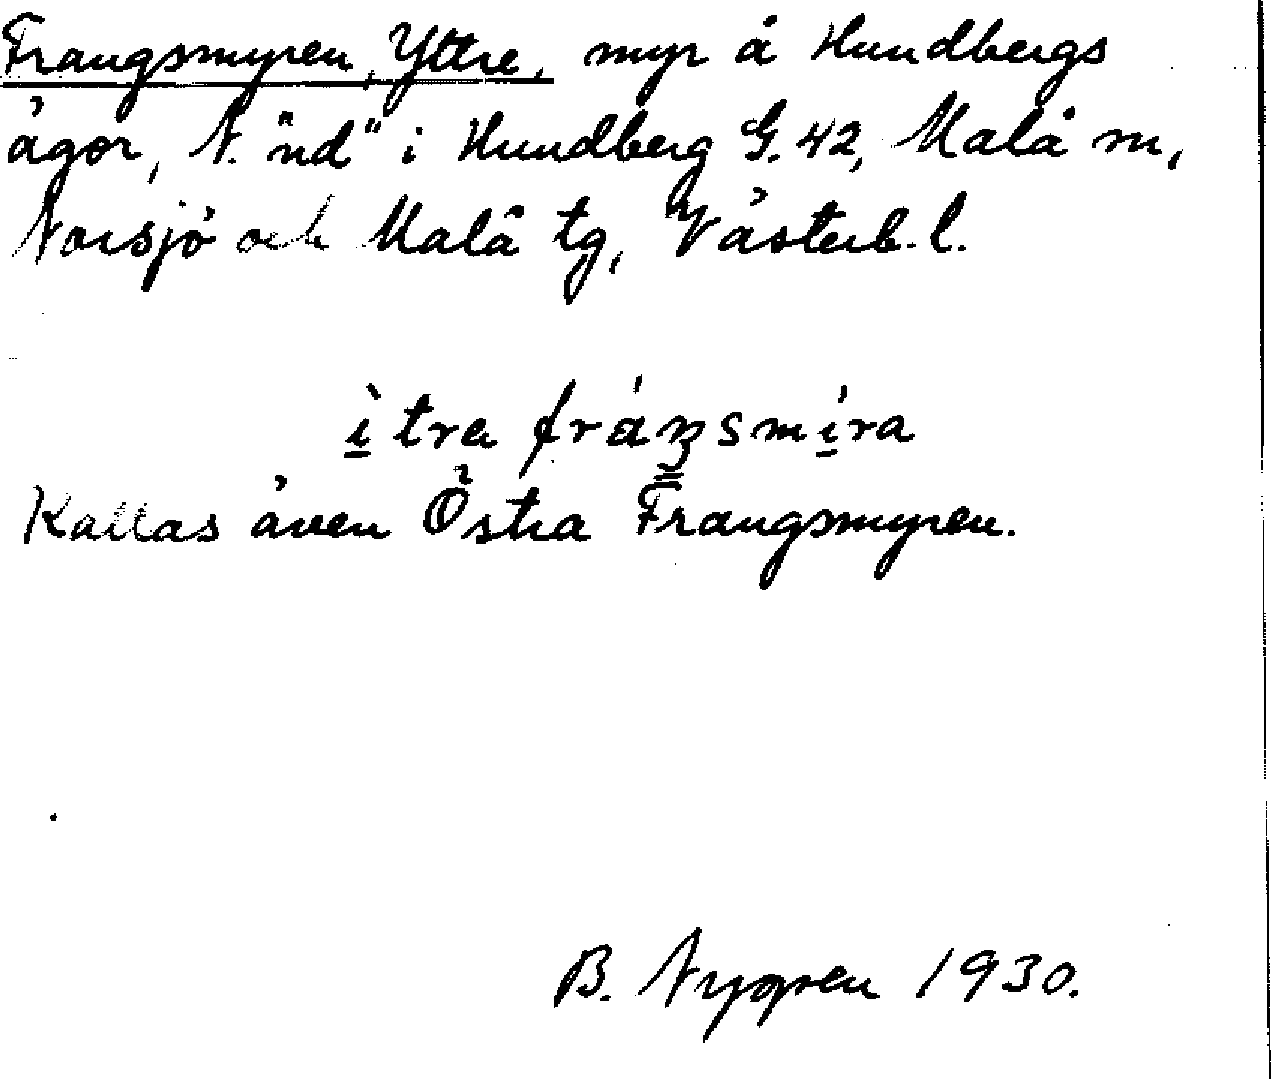 Frangsmyren, Yttre, myr å Hundbergs
ägor, N. "nd" i Hundberg G. 42, Malå sn,
Norsjö och Malå tg, Västerb. l.
ìtra fráŋsmíra
Kallas även Östra Frangsmyren.
B. Nygren 1930.